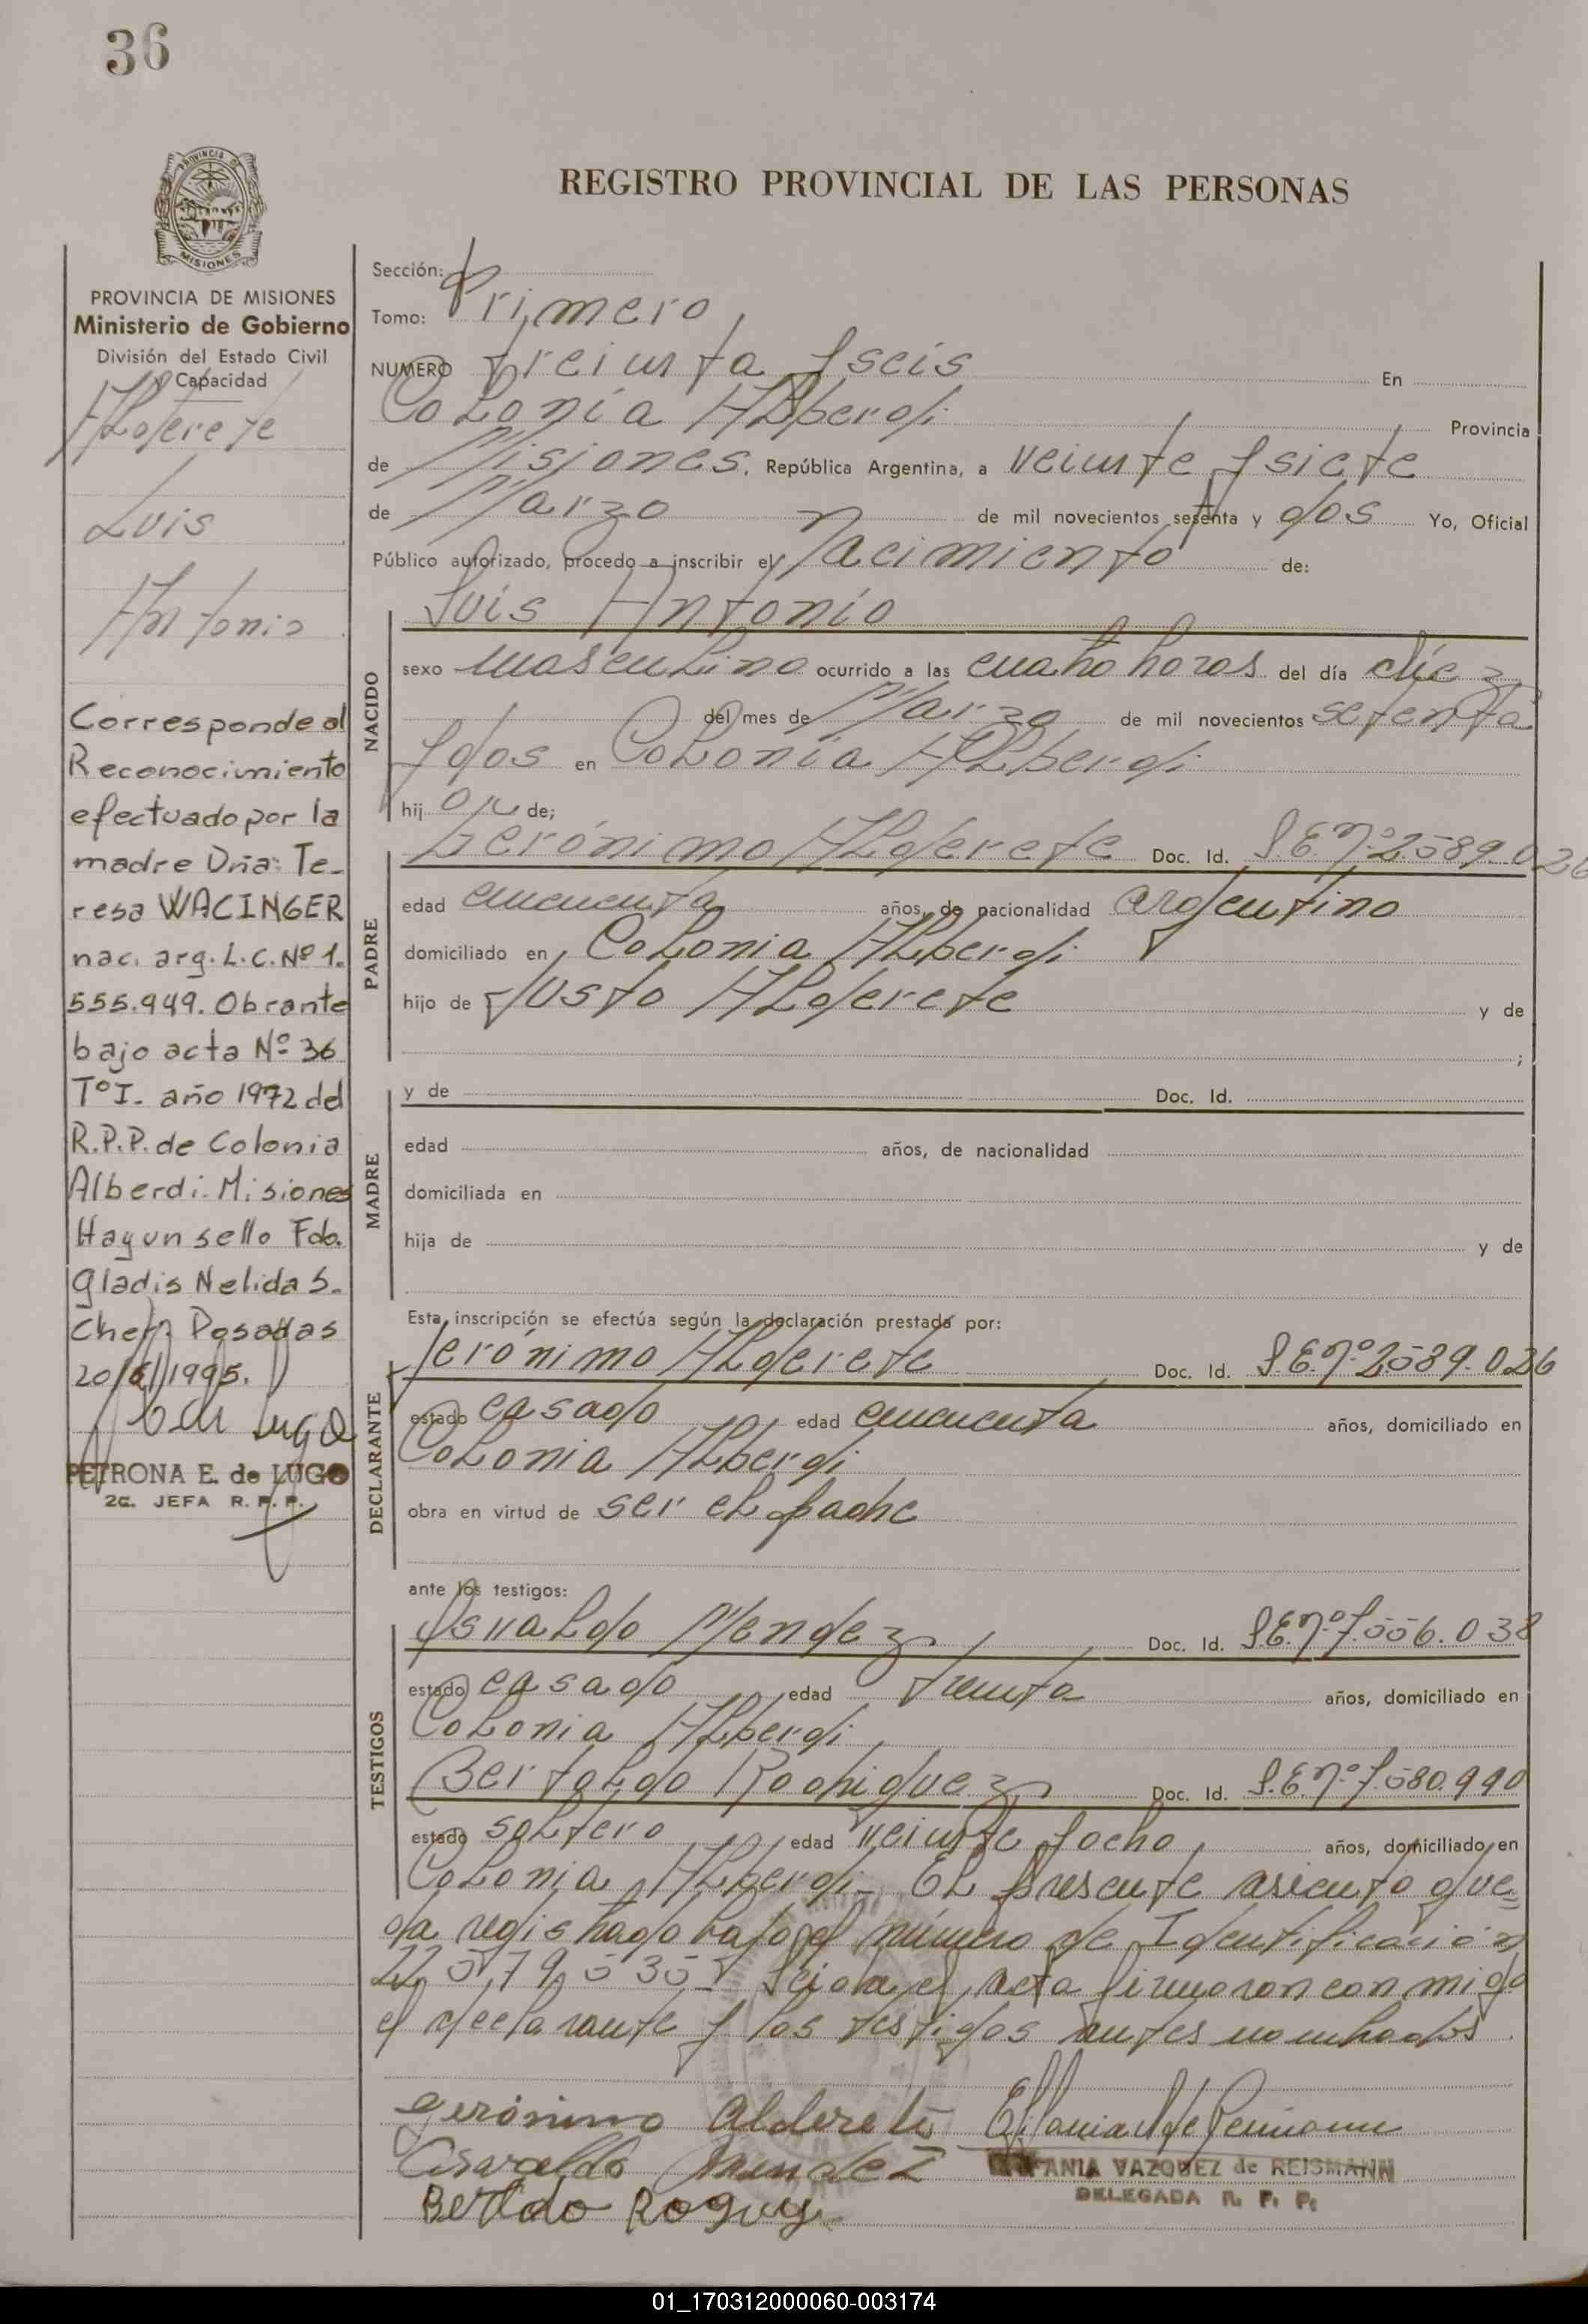 36
PROVINCIA DE MISIONES
MISIONES
PROVINCIA DE MISIONES
Ministerio de Gobierno
División del Estado Civil
y Capacidad
Alderete
Luis
Antonio
Corresponde al
Reconocimiento
efectuado por la
madre Dña: Te-
resa WACINGER
nac. arg. L.C. Nº 1.
555.949. Obrante
bajo acta Nº 36
Tº I. año 1972 del
R.P.P. de Colonia
Alberdi. Misiones
Hay un sello Fdo.
Gladis Nelida S.
Posadas
1995.
PETRONA E. de LUGO
2a. JEFA R. P. P.
REGISTRO PROVINCIAL DE LAS PERSONAS
Sección:
Tomo: Primero
NUMERO treinta y seis En
Colonia Alberdi Provincia
de Misiones. República Argentina, a veinte y siete
de Marzo de mil novecientos setenta y dos Yo, Oficial
Público autorizado, procedo a inscribir el Nacimiento de:
NACIDO
Luis Antonio
sexo masculino ocurrido a las cuatro horas del día diez
del mes de Marzo de mil novecientos setenta
y dos en Colonia Alberdi
hijo de;
PADRE
Gerónimo Alderete Doc. Id. L.E.Nº 2.589.026
edad cincuenta años, de nacionalidad argentino
domiciliado en Colonia Alberdi
hijo de Justo Alderete y de
;
MADRE
y de Doc. Id.
edad años, de nacionalidad
domiciliada en
hija de y de
Esta inscripción se efectúa según la declaración prestada por:
DECLARANTE
Jerónimo Alderete Doc. Id. L.E.Nº 2.589.026
estado casado edad cincuenta años, domiciliado en
Colonia Alberdi
obra en virtud de ser el padre
ante los testigos:
TESTIGOS
Osvaldo Mendez Doc. Id. L.E.Nº 7.556.038
estado casado edad treinta años, domiciliado en
Colonia Alberdi
Bertoldo Rodriguez Doc. Id. L.E.Nº 7.580.990
estado soltero edad veinte y ocho años, domiciliado en
Colonia Alberdi - El presente asiento que=
da registrado bajo el número de Identificación
22,579,535 - Leida el acta firmaron conmigo
el declarante y los testigos antes nombrados.
Gerónimo Alderete
Osvaldo Mendez
VAZQUEZ de REISMANN
DELEGADA R. P. P.
01_170312000060-003174